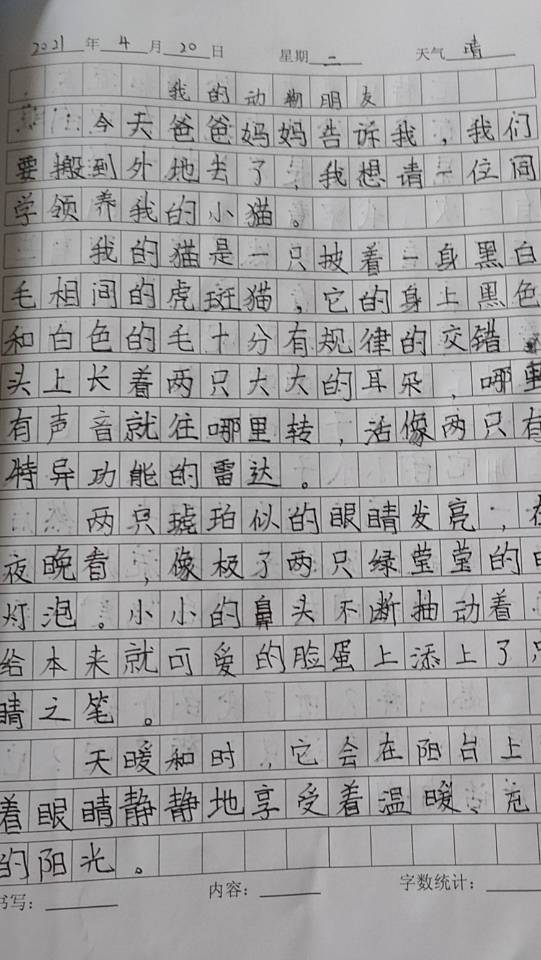 2021年4月20日 星期二 天气晴
我的动物朋友
今天爸爸妈妈告诉我，我们
要搬到外地去了，我想请一位同
学领养我的小猫。
我的猫是一只披着一身黑白
毛相间的虎斑猫，它的身上黑色
和白色的毛十分有规律的交错
头上长着两只大大的耳朵，哪里
有声音就往哪里转，活像两只有
特异功能的雷达。
两只琥珀似的眼睛发亮，在
夜晚看，像极了两只绿莹莹的电
灯泡。小小的鼻头不断抽动着
给本来就可爱的脸蛋上添上了点
睛之笔。
天暖和时，它会在阳台上
着眼睛静静地享受着温暖、充
的阳光。
书写： 内容： 字数统计：